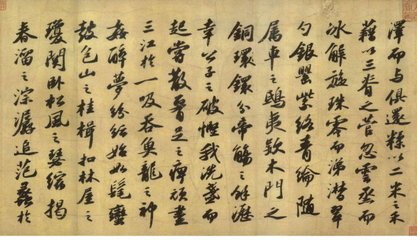 澤而與俱還糅以二米之禾
藉以三脊之菅忽雲烝而
冰解旋珠零而涕潸翠
勺銀罌紫絡青綸隨
屬車之鴟夷款木門之
銅環鐶分帝觴之餘瀝
幸公子之破慳我洗盞而
起嘗散腰足之痺頑盡
三江於一吸吞魚龍之神
姦醉夢紛紜始如髦蠻
鼓包山之桂楫扣林屋之
瓊關臥松風之瑟縮揭
春溜之淙潺追范蠡於